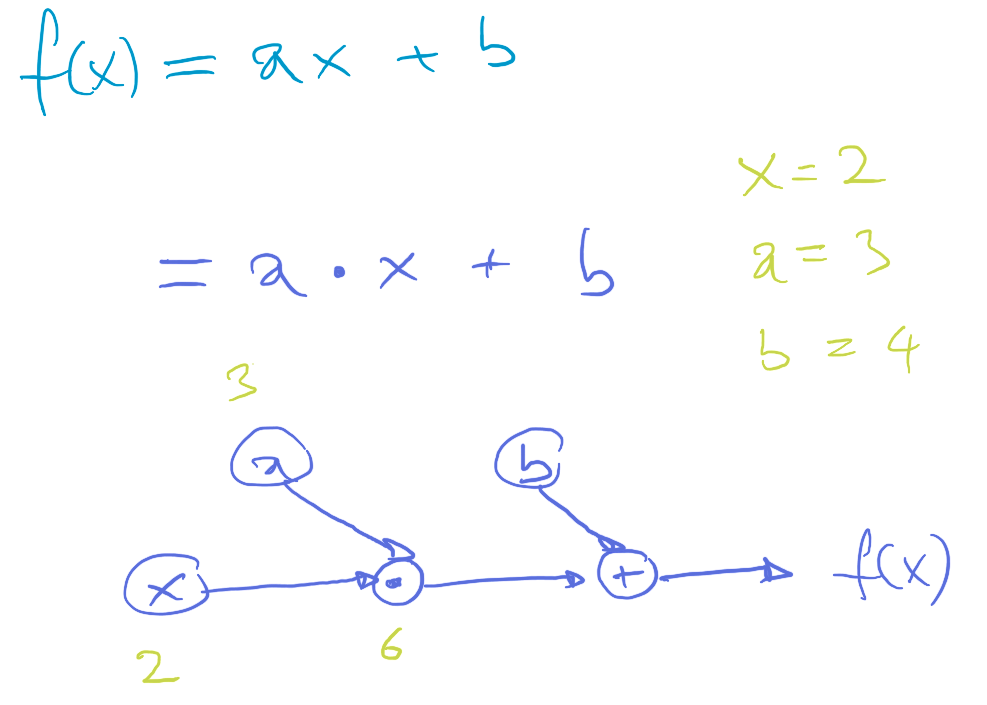 f(x) = ax + b
x = 2
= a · x + b
a = 3
b = 4
3
a
b
x
·
+
f(x)
2
6